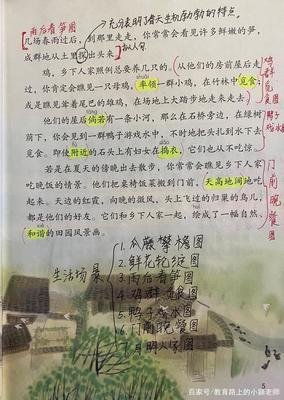 雨后看笋图
充分表明了春天生机勃勃的特点。
几场春雨过后，到那里走走，你常常会看见许多鲜嫩的笋，
成群地从土里探出头来。
拟人句
鸡，乡下人家照例总要养几只的。从他们的房前屋后走
shuài
过，你肯定会瞧见一只母鸡，率领一群小鸡，在竹林中觅食；
或是瞧见耸着尾巴的雄鸡，在场地上大踏步地走来走去。
鸡群觅食图
tǎng
他们的屋后倘若有一条小河，那么在石桥旁边，在绿树
荫下，你会见到一群鸭子游戏水中，不时地把头扎到水下去
鸭子戏水图
fù
dǎo
觅食。即使附近的石头上有妇女在捣衣，它们也从不吃惊。
若是在夏天的傍晚出去散步，你常常会瞧见乡下人家
吃晚饭的情景。他们把桌椅饭菜搬到门前，天高地阔地吃
起来。天边的红霞，向晚的微风，头上飞过的归巢的鸟儿，
都是他们的好友。它们和乡下人家一起，绘成了一幅自然、
xié
和谐的田园风景画。
门前晚餐图
生活场景
1.瓜藤攀檐图
2.鲜花轮绽图
3.雨后看笋图
4.鸡群觅食图
5.鸭子戏水图
6.门前晚餐图
7.月明人家图
5
百家号/教育路上的小颖老师